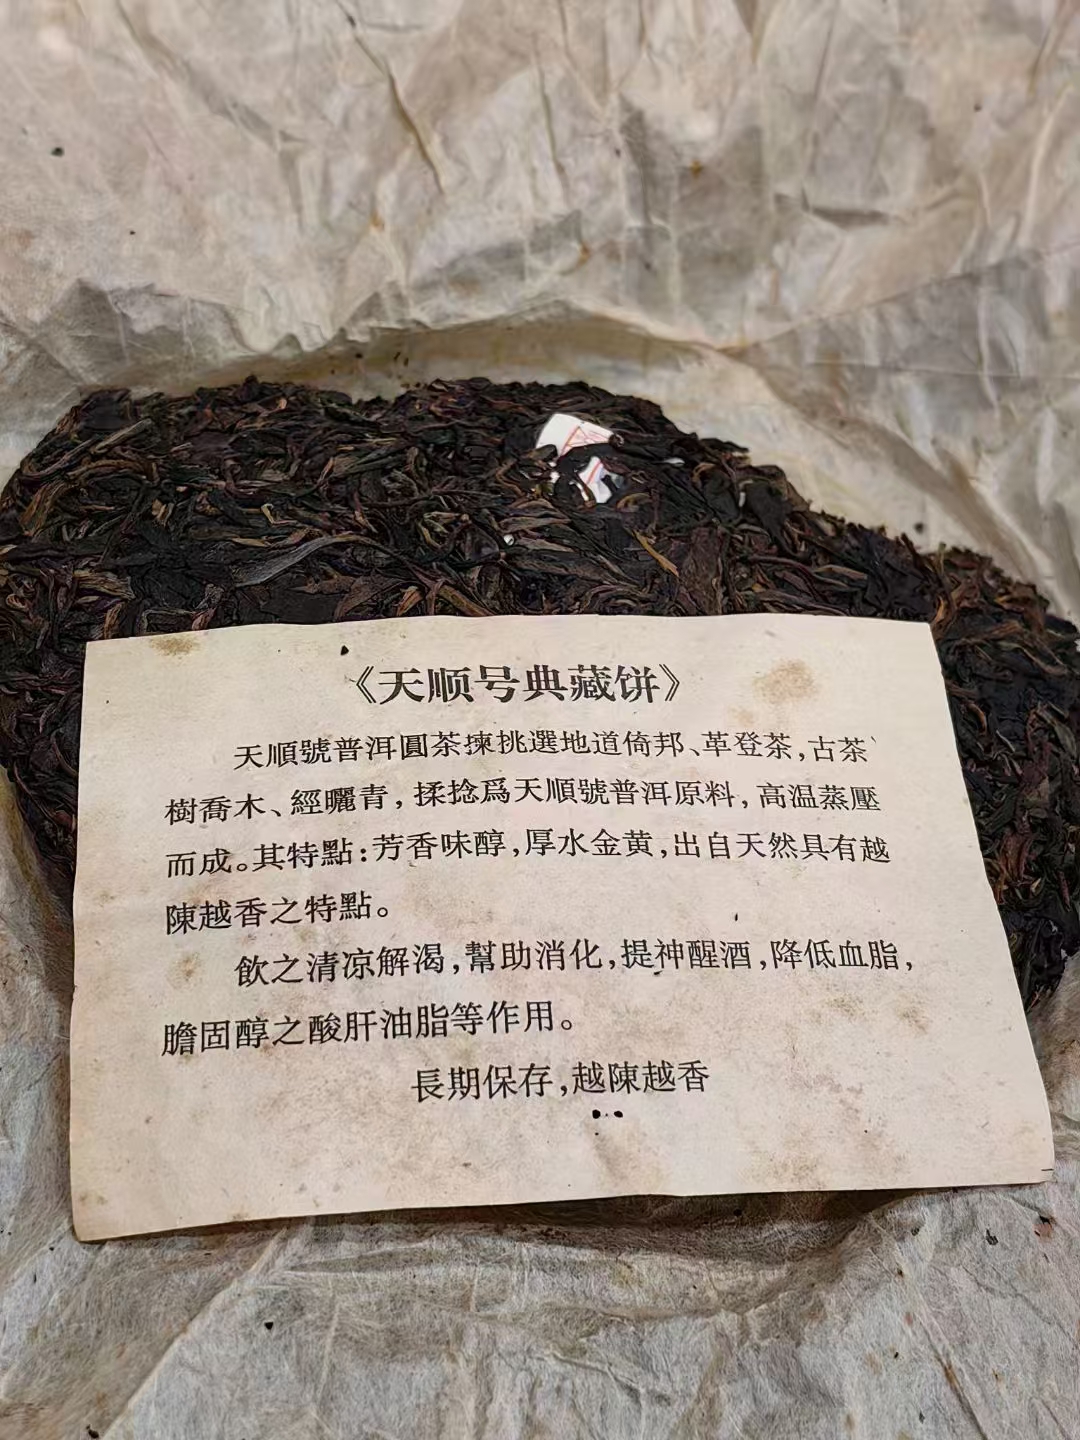 《天顺号典藏饼》
天順號普洱圓茶揀挑選地道倚邦、革登茶,古茶
樹喬木、經曬青,揉捻爲天順號普洱原料,高温蒸壓
而成。其特點:芳香味醇,厚水金黄,出自天然具有越
陳越香之特點。
飲之清凉解渴,幫助消化,提神醒酒,降低血脂,
膽固醇之酸肝油脂等作用。
長期保存,越陳越香